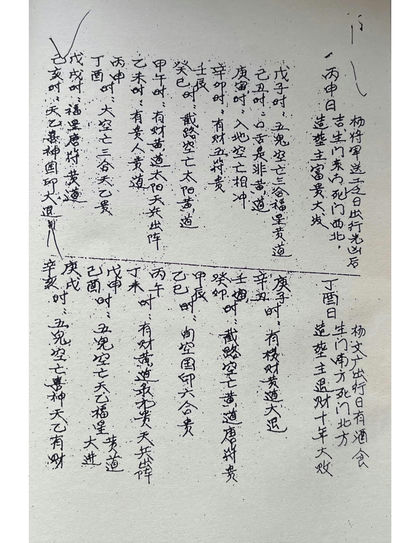 杨将军送之日出行先凶后
一丙申日
吉生门东方死门西北,
造葬主富贵大发
戊子时:五鬼空亡三合福星黄道
己丑时:口舌是非黄道
庚寅时:入地空亡相冲
辛卯时:有财五符贵
壬辰
癸巳时:截路空亡太阳黄道
甲午时:有财黄道太阳天兵出阵
乙未时:有贵人黄道
丙申
丁酉时:大空亡三合天乙贵
戊戌时:福星唐符黄道
己亥时:天乙喜神国印大退
杨文广出行日有酒食
丁酉日
生门南方死门北方
造葬主退财十年大败
庚子时:有横财黄道大退
辛丑
壬寅时:截路空亡黄道唐符贵
癸卯
甲辰
乙巳时:旬空国印六合贵
丙午
丁未时:有财黄道贵天兵出阵
戊申
己酉时:五鬼空亡天乙福星黄道大进
庚戌
辛亥时:五鬼空亡喜神天乙有财